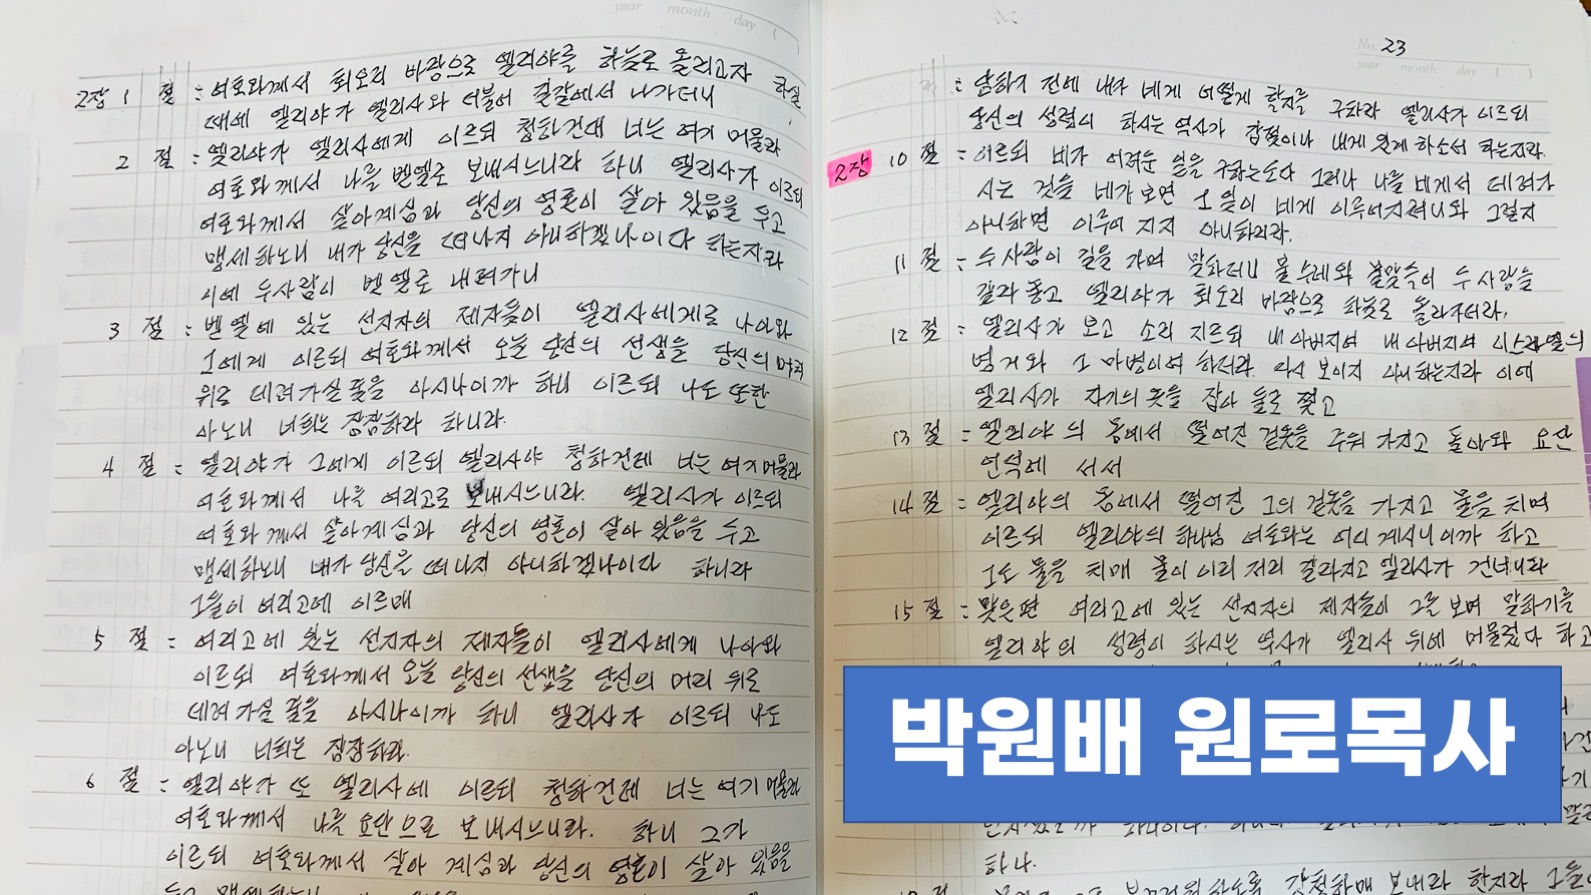 year month day ( )
2장 1 절 : 여호와께서 회오리 바람으로 엘리야를 하늘로 올리고자 하실
때에 엘리야가 엘리사와 더불어 길갈에서 나가더니
2 절 : 엘리야가 엘리사에게 이르되 청하건대 너는 여기 머물라
여호와께서 나를 벧엘로 보내시느니라 하니 엘리사가 이르되
여호와께서 살아계심과 당신의 영혼이 살아 있음을 두고
맹세하노니 내가 당신을 떠나지 아니하겠나이다 하는지라
이에 두사람이 벧엘로 내려가니
3 절 : 벧엘에 있는 선지자의 제자들이 엘리사에게로 나아와
그에게 이르되 여호와께서 오늘 당신의 선생을 당신의 머리
위로 데려가실줄을 아시나이까 하니 이르되 나도 또한
아노니 너희는 잠잠하라 하니라.
4 절 : 엘리야가 그에게 이르되 엘리사야 청하건데 너는 여기머물라
여호와께서 나를 여리고로 보내시느니라. 엘리사가 이르되
여호와께서 살아계심과 당신의 영혼이 살아 있음을 두고
맹세하노니 내가 당신을 떠나지 아니하겠나이다 하니라
그들이 여리고에 이르매
5 절 = 여리고에 있는 선지자의 제자들이 엘리사에게 나아와
이르되 여호와께서 오늘 당신의 선생을 당신의 머리 위로
데려가실 줄을 아시나이까 하니 엘리사가 이르되 나도
아노니 너희는 잠잠하라.
6 절 = 엘리야가 또 엘리사에 이르되 청하건데 너는 여기 머물라
여호와께서 나를 요단으로 보내시느니라. 하니 그가
이르되 여호와께서 살아 계심과 당신의 영혼이 살아 있음을
두고 맹세하노니
No. 23
year month day ( )
: 당하기 전에 내가 네게 어떻게 할지를 구하라 엘리사가 이르되
당신의 성령이 하시는 역사가 갑절이나 내게 있게 하소서 하는지라.
2장 10 절 = 이르되 네가 어려운 일을 구하는도다 그러나 나를 네게서 데려가
시는 것을 네가 보면 그 일이 네게 이루어지려니와 그렇지
아니하면 이루어 지지 아니하리라.
11 절 = 두사람이 길을 가며 말하더니 불수레와 불말들이 두 사람을
갈라 놓고 엘리야가 회오리 바람으로 하늘로 올라가더라.
12 절 = 엘리사가 보고 소리 지르되 내 아버지여 내 아버지여 이스라엘의
병거와 그 마병이여 하더라 다시 보이지 아니하는지라 이에
엘리사가 자기의 옷을 잡아 둘로 찢고
13 절 = 엘리야의 몸에서 떨어진 겉옷을 주워 가지고 돌아와 요단
언덕에 서서
14 절 = 엘리야의 몸에서 떨어진 그의 겉옷을 가지고 물을 치며
이르되 엘리야의 하나님 여호와는 어디 계시니이까 하고
그도 물을 치매 물이 이리 저리 갈라지고 엘리사가 건너니라
15 절 = 맞은편 여리고에 있는 선지자의 제자들이 그를 보며 말하기를
엘리야의 성령이 하시는 역사가 엘리사 위에 머물렀다 하고
박원배 원로목사
하니.
보내라 한지라 그들이